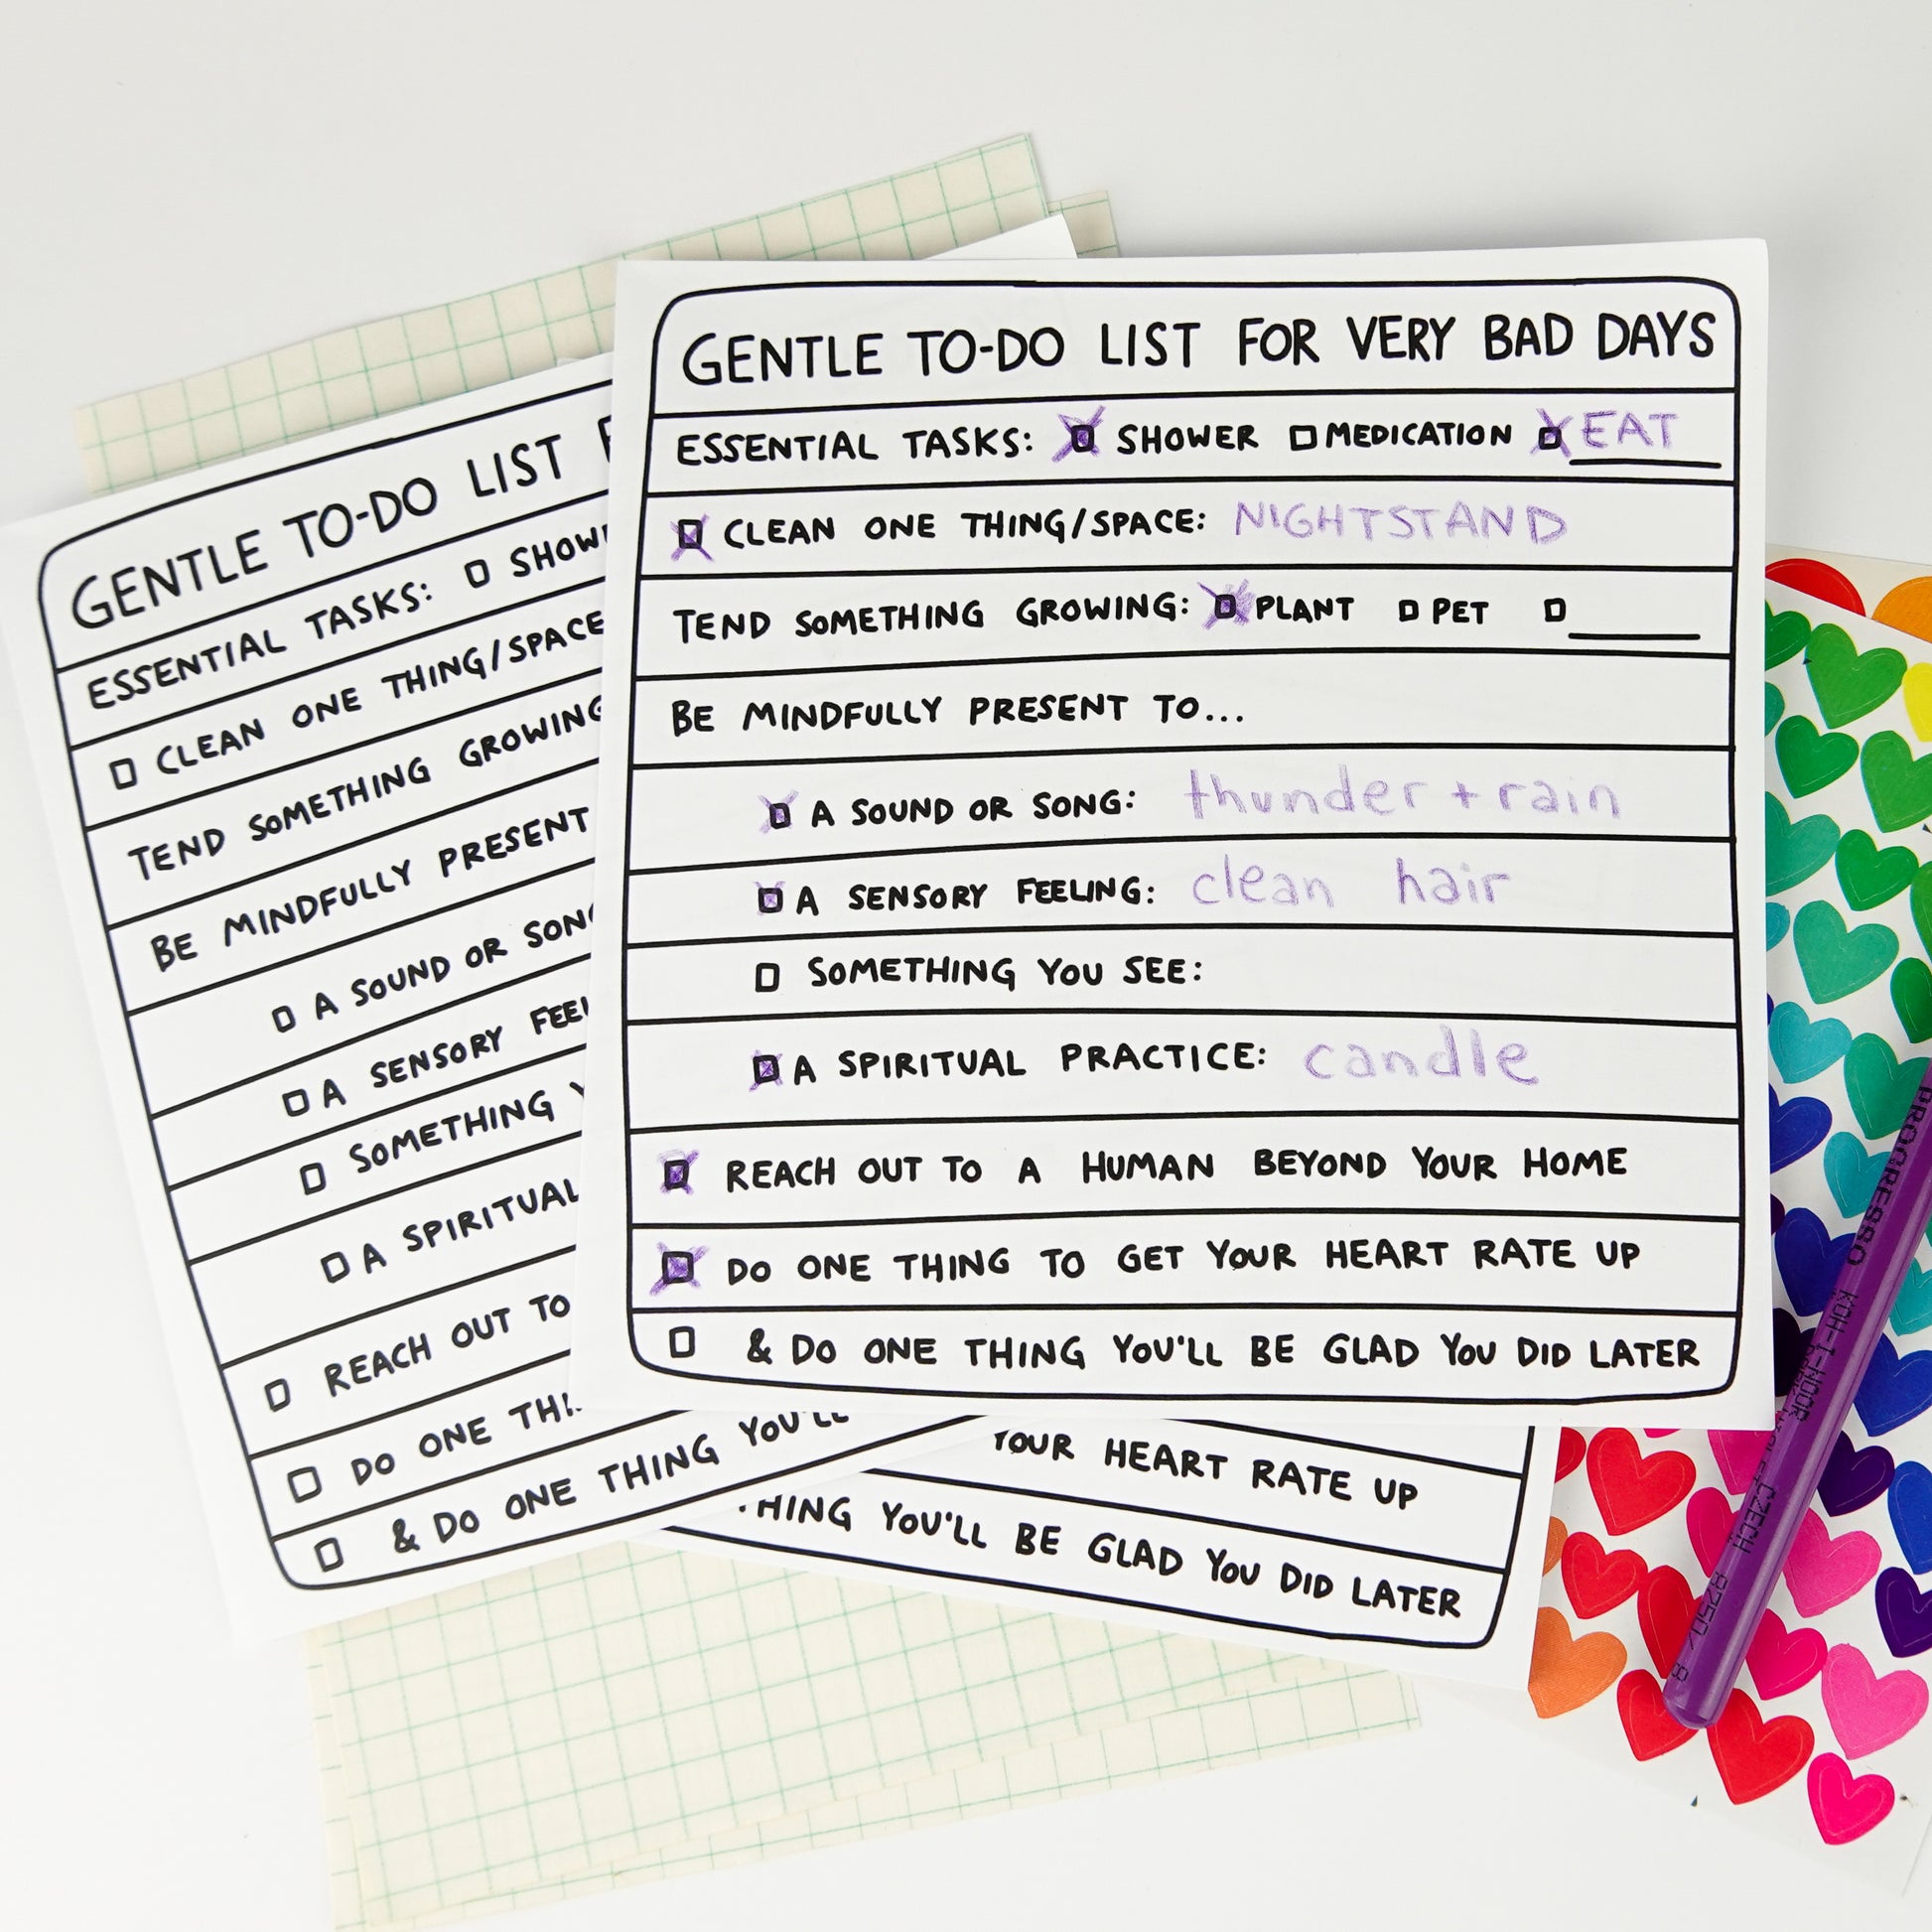 GENTLE TO-DO LIST FOR VERY BAD DAYS
ESSENTIAL TASKS: SHOWER MEDICATION EAT
CLEAN ONE THING/SPACE: NIGHTSTAND
TEND SOMETHING GROWING: PLANT PET
BE MINDFULLY PRESENT TO...
A SOUND OR SONG: thunder + rain
A SENSORY FEELING: clean hair
SOMETHING YOU SEE:
A SPIRITUAL PRACTICE: candle
REACH OUT TO A HUMAN BEYOND YOUR HOME
DO ONE THING TO GET YOUR HEART RATE UP
& DO ONE THING YOU'LL BE GLAD YOU DID LATER
GENTLE TO-DO LIST
ESSENTIAL TASKS: SHOW
CLEAN ONE THING/SPACE
TEND SOMETHING GROWING
BE MINDFULLY PRESENT
A SOUND OR SONG
A SENSORY FEEL
SOMETHING
A SPIRITUAL
REACH OUT TO
DO ONE THI
& DO ONE THING YOU'LL
YOUR HEART RATE UP
THING YOU'LL BE GLAD YOU DID LATER
PROGRESSO KOH-I-NOOR CZECH 8750/8